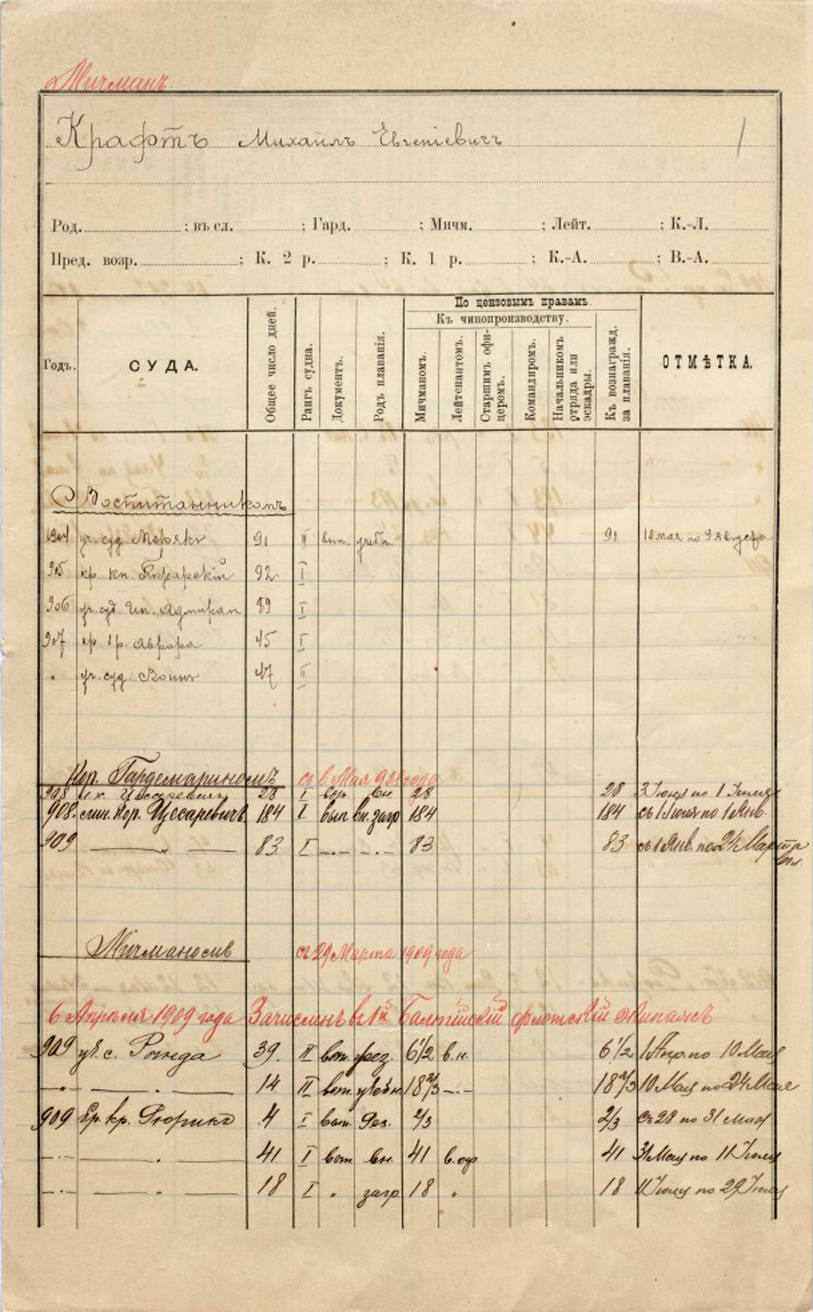 Мичманъ
Крафтъ Михаилъ Евгеніевичъ
Род. ; въ сл. ; Гард. ; Мичм. ; Лейт. ; К.-Л.
Пред. возр. ; К. 2 р. ; К. 1 р. ; К.-А. ; В.-А.
Годъ. СУДА. Общее число дней. Рангъ судна. Документъ. Родъ плаванія. По цензовымъ правамъ. Къ чинопроизводству. Мичманомъ. Лейтенантомъ. Старшимъ офи-церомъ. Командиромъ. Начальникомъ отряда или эскадры. Къ вознагражд. за плаванія. ОТМѢТКА.
Воспитанникомъ
1904 уч. суд. Морякъ 91 II вн. учебн. 91 10 мая по 9 августа
905 кр. кн. Пожарскій 92 I
906 уч. суд. Ген. Адмирал 89 I
907 кр. 1 р. Аврора 45 I
" уч. суд. Воинъ 47 II
Кор. Гардемариномъ съ 6 Мая 908 года
908 Цесаревичъ 28 I вн. 28 28 3 Іюня по 1 Іюля
908. лин. кор. Цесаревичъ 184 I вып вн. загр 184 184 съ 1 Іюля по 1 Янв.
909 — " — 83 I —.— —.— 83 83 съ 1 Янв. по 24 Марта
Мичманомъ съ 29 Марта 1909 года
6 Апрѣля 1909 года Зачисленъ въ 1й Балтійскій флотскій экипажъ
909 уч. с. Рында 39. II воор. рез. 6 1/2 в.н. 6 1/2 1 Апр. по 10 Мая
—.— — 14 II воор. учебн 18 2/3 —.— 18 2/3 10 Мая по 24 Мая
909 бр. кр. Рюрикъ 4 I воор. Рез. 2/3 2/3 съ 28 по 31 Мая
—.— — . — 41 I воор вн. 41 в.оф 41 31 Мая по 11 Іюля
—.— — . — 18 I " загр 18 " 18 11 Іюля по 29 Іюля